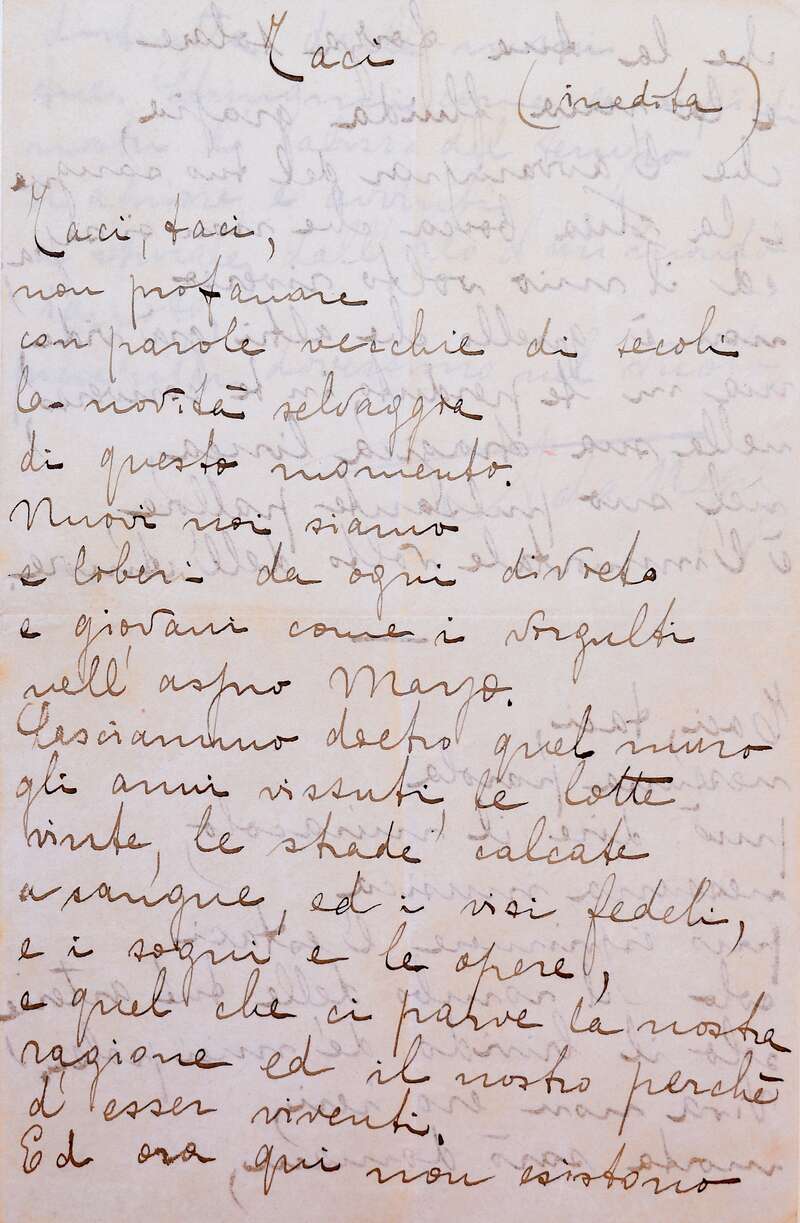 Taci
(inedita)
Taci, taci,
non profanare
con parole vecchie di secoli
la novità selvaggia
di questo momento.
Nuovi noi siamo
e liberi da ogni divieto
e giovani come i virgulti
nell' aspro Marzo.
Lasciammo dietro quel muro
gli anni vissuti, le lotte
vinte, le strade calcate
a sangue, ed i visi fedeli,
e i sogni e le opere,
e quel che ci parve la nostra
ragione ed il nostro perchè
d' esser viventi.
Ed ora, qui non esistono